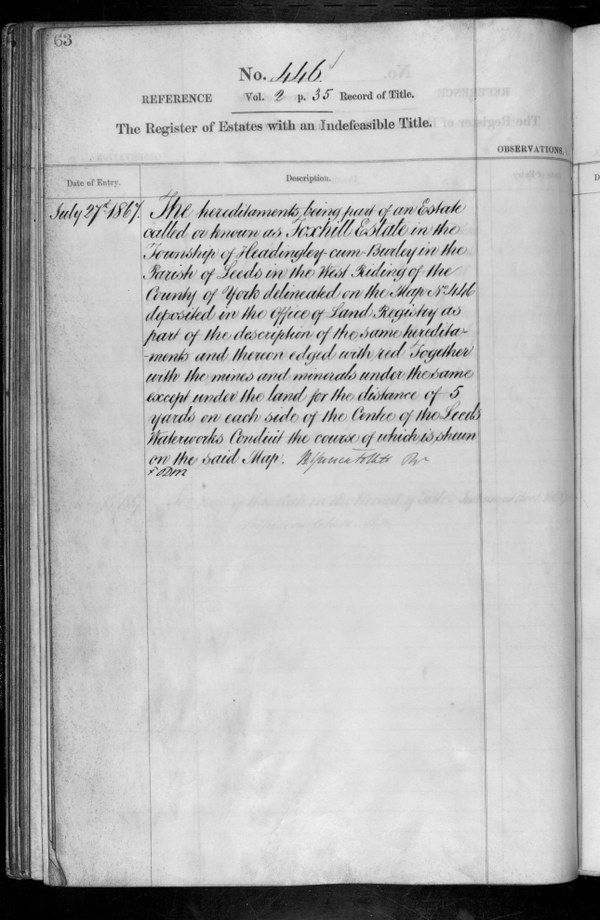 63
No. 446
REFERENCE Vol. 2 p. 35 Record of Title.
The Register of Estates with an Indefeasible Title.
OBSERVATIONS.
Date of Entry.
Description.
July 27th 1867.
The hereditaments being part of an Estate
called or known as Foxhill Estate in the
Township of Headingley-cum-Burley in the
Parish of Leeds in the West Riding of the
County of York delineated on the Map No 446
deposited in the Office of Land Registry as
part of the description of the same heredita-
-ments and thereon edged with red Together
with the mines and minerals under the same
except under the land for the distance of 5
yards on each side of the Centre of the Leeds
Waterworks Conduit the course of which is shewn
on the said Map.